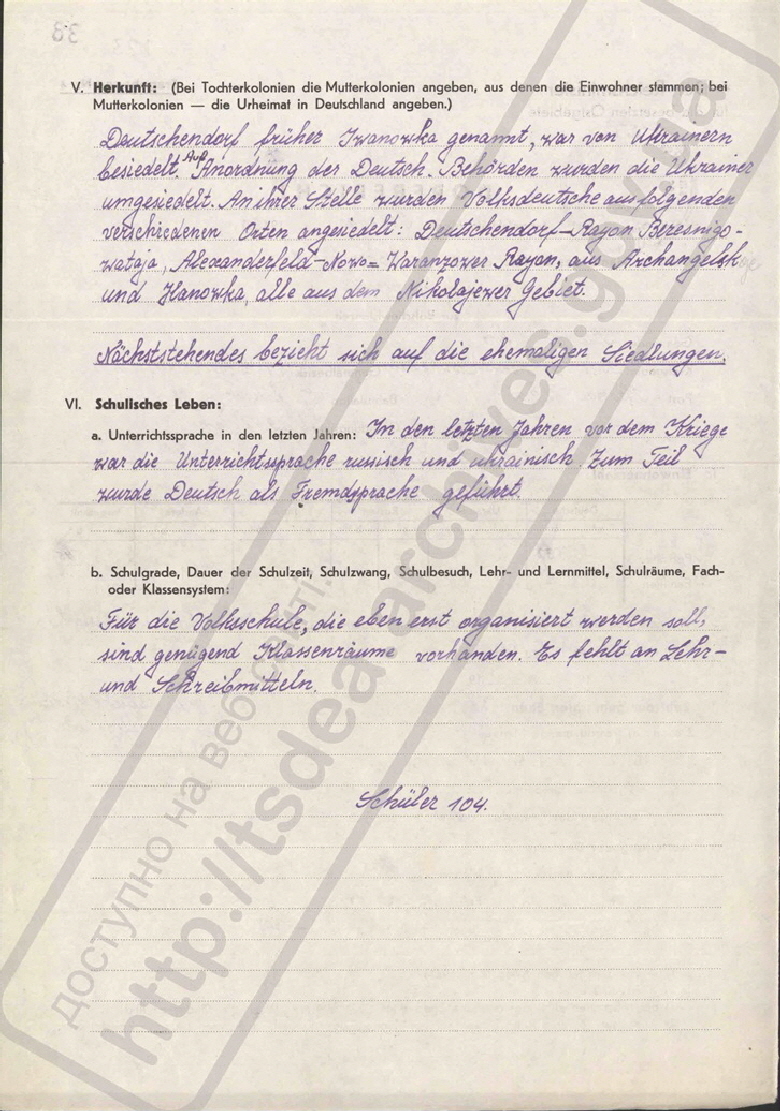 V. Herkunft: (Bei Tochterkolonien die Mutterkolonien angeben, aus denen die Einwohner stammen; bei
Mutterkolonien — die Urheimat in Deutschland angeben.)
Deutschendorf früher Iwanowka genannt, war von Ukrainern
besiedelt. Auf Anordnung der Deutsch. Behörden wurden die Ukrainer
umgesiedelt. An ihrer Stelle wurden Volksdeutsche aus folgenden
verschiedenen Orten angesiedelt: Deutschendorf-Rayon Beresnigo-
wataja, Alexanderfeld-Nowo= Waranzower Rayon, aus Archangelsk
und Ilanowka, alle aus dem Nikolajewer Gebiet.
Nächststehendes bezieht sich auf die ehemaligen Siedlungen.
VI. Schulisches Leben:
a. Unterrichtssprache in den letzten Jahren: In den letzten Jahren vor dem Kriege
war die Unterrichtssprache russisch und ukrainisch. Zum Teil
wurde Deutsch als Fremdsprache geführt.
b. Schulgrade, Dauer der Schulzeit, Schulzwang, Schulbesuch, Lehr- und Lernmittel, Schulräume, Fach-
oder Klassensystem:
Für die Volksschule, die eben erst organisiert werden soll,
sind genügend Klassenräume vorhanden. Es fehlt an Lehr-
und Schreibmitteln.
Schüler 104.
доступно на веб-сайті
http://tsdea.archives.gov.ua